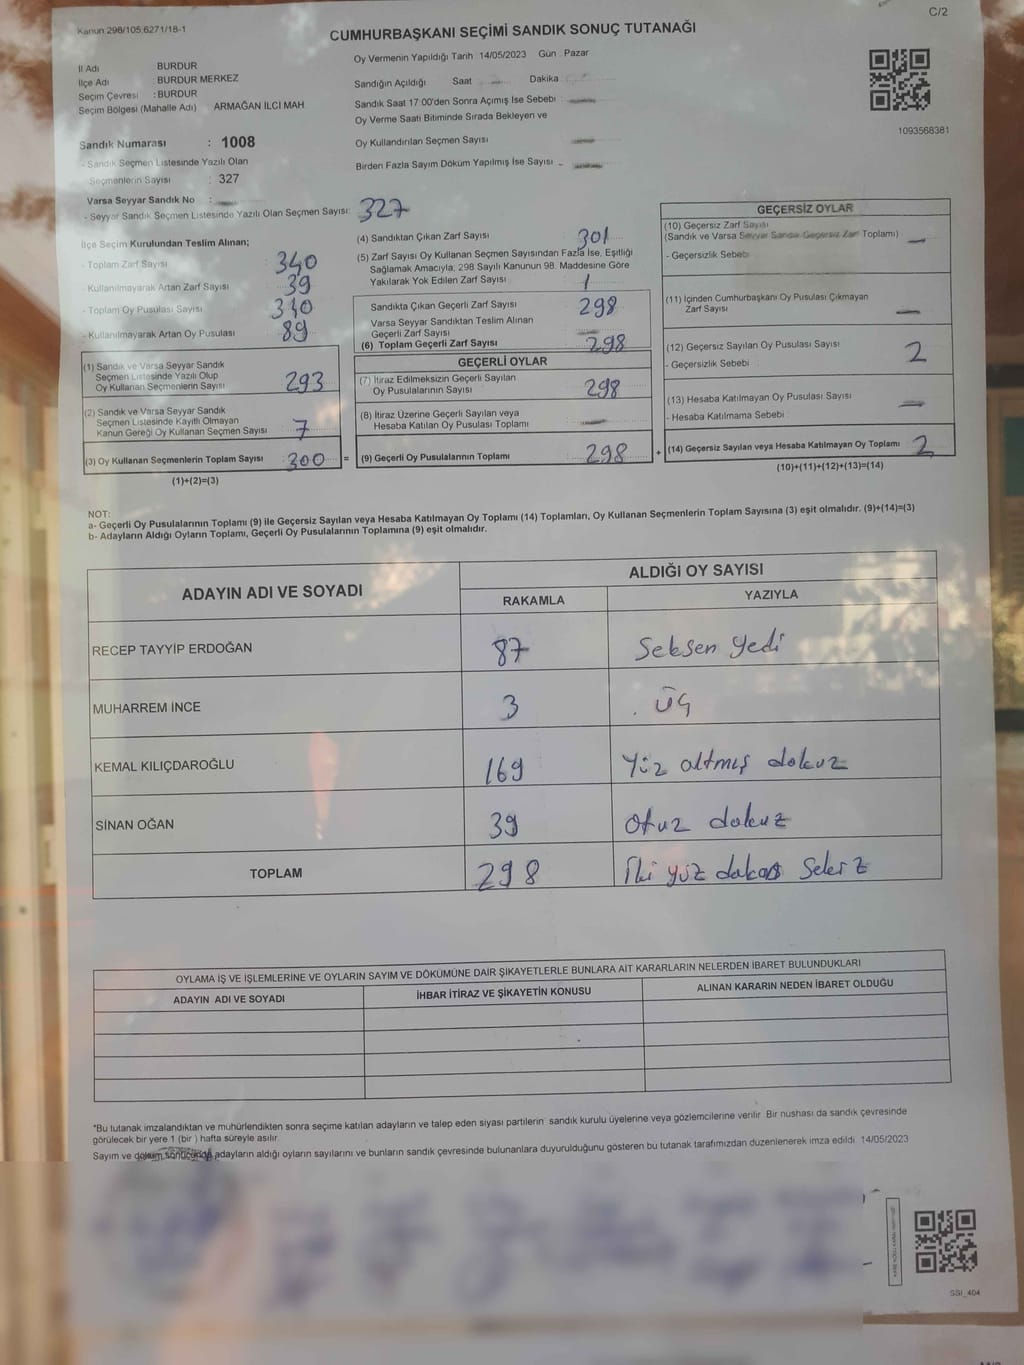 Kanun 298/105,6271/18-1
C/2
CUMHURBAŞKANI SEÇİMİ SANDIK SONUÇ TUTANAĞI
Oy Vermenin Yapıldığı Tarih 14/05/2023 Gün : Pazar
İl Adı BURDUR
İlçe Adı BURDUR MERKEZ
Seçim Çevresi : BURDUR
Seçim Bölgesi (Mahalle Adı) ARMAĞAN İLCİ MAH
Sandık Numarası : 1008
- Sandık Seçmen Listesinde Yazılı Olan
Seçmenlerin Sayısı : 327
Varsa Seyyar Sandık No :
- Seyyar Sandık Seçmen Listesinde Yazılı Olan Seçmen Sayısı: 327
Sandığın Açıldığı Saat Dakika
Sandık Saat 17:00'den Sonra Açımış İse Sebebi
Oy Verme Saati Bitiminde Sırada Bekleyen ve
Oy Kullandırılan Seçmen Sayısı
Birden Fazla Sayım Döküm Yapılmış İse Sayısı
1093568381
İlçe Seçim Kurulundan Teslim Alınan;
- Toplam Zarf Sayısı 340
- Kullanılmayarak Artan Zarf Sayısı 39
- Toplam Oy Pusulası Sayısı
- Kullanılmayarak Artan Oy Pusulası 89
(1) Sandık ve Varsa Seyyar Sandık
Seçmen Listesinde Yazılı Olup
Oy Kullanan Seçmenlerin Sayısı 293
(2) Sandık ve Varsa Seyyar Sandık
Seçmen Listesinde Kayıtlı Olmayan
Kanun Gereği Oy Kullanan Seçmen Sayısı 7
(3) Oy Kullanan Seçmenlerin Toplam Sayısı 300 =
(1)+(2)=(3)
(4) Sandıktan Çıkan Zarf Sayısı 301
(5) Zarf Sayısı Oy Kullanan Seçmen Sayısından Fazla İse, Eşitliği
Sağlamak Amacıyla, 298 Sayılı Kanunun 98. Maddesine Göre
Yakılarak Yok Edilen Zarf Sayısı 1
Sandıkta Çıkan Geçerli Zarf Sayısı 298
Varsa Seyyar Sandıktan Teslim Alınan
Geçerli Zarf Sayısı
(6) Toplam Geçerli Zarf Sayısı 298
GEÇERLİ OYLAR
(7) İtiraz Edilmeksizin Geçerli Sayılan
Oy Pusulalarının Sayısı 298
(8) İtiraz Üzerine Geçerli Sayılan veya
Hesaba Katılan Oy Pusulası Toplamı
(9) Geçerli Oy Pusulalarının Toplamı 298 +
GEÇERSİZ OYLAR
(10) Geçersiz Zarf Sayısı
(Sandık ve Varsa Seyyar Sandık Geçersiz Zarf Toplamı)
- Geçersizlik Sebebi
(11) İçinden Cumhurbaşkanı Oy Pusulası Çıkmayan
Zarf Sayısı
(12) Geçersiz Sayılan Oy Pusulası Sayısı 2
- Geçersizlik Sebebi
(13) Hesaba Katılmayan Oy Pusulası Sayısı
- Hesaba Katılmama Sebebi
(14) Geçersiz Sayılan veya Hesaba Katılmayan Oy Toplamı 2
(10)+(11)+(12)+(13)=(14)
NOT:
a- Geçerli Oy Pusulalarının Toplamı (9) ile Geçersiz Sayılan veya Hesaba Katılmayan Oy Toplamı (14) Toplamları, Oy Kullanan Seçmenlerin Toplam Sayısına (3) eşit olmalıdır. (9)+(14)=(3)
b- Adayların Aldığı Oyların Toplamı, Geçerli Oy Pusulalarının Toplamına (9) eşit olmalıdır.
ADAYIN ADI VE SOYADI ALDIĞI OY SAYISI
RAKAMLA YAZIYLA
RECEP TAYYİP ERDOĞAN 87 Seksen Yedi
MUHARREM İNCE 3 Üç
KEMAL KILIÇDAROĞLU 169 Yüz altmış dokuz
SİNAN OĞAN 39 Otuz dokuz
TOPLAM 298 İki yüz Sekiz
OYLAMA İŞ VE İŞLEMLERİNE VE OYLARIN SAYIM VE DÖKÜMÜNE DAİR ŞİKAYETLERLE BUNLARA AİT KARARLARIN NELERDEN İBARET BULUNDUKLARI
ADAYIN ADI VE SOYADI İHBAR İTİRAZ VE ŞİKAYETİN KONUSU ALINAN KARARIN NEDEN İBARET OLDUĞU
*Bu tutanak imzalandıktan ve mühürlendikten sonra seçime katılan adayların ve talep eden siyasi partilerin sandık kurulu üyelerine veya gözlemcilerine verilir. Bir nushası da sandık çevresinde
görülecek bir yere 1 (bir ) hafta süreyle asılır.
Sayım ve döküm sonucunda adayların aldığı oyların sayılarını ve bunların sandık çevresinde bulunanlara duyurulduğunu gösteren bu tutanak tarafımızdan düzenlenerek imza edildi. 14/05/2023
SSI_404